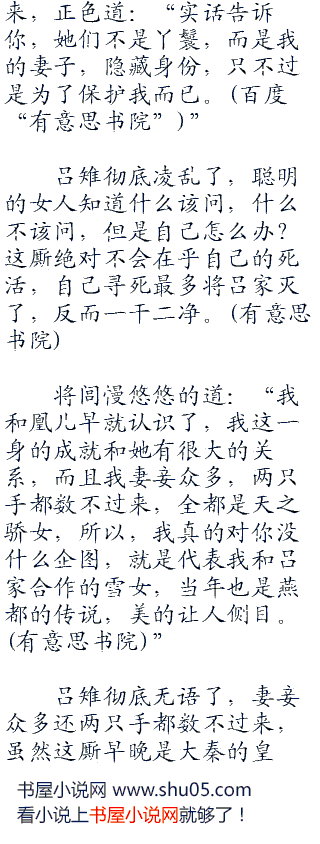 来，正色道：“实话告诉
你，她们不是丫鬟，而是我
的妻子，隐藏身份，只不过
是为了保护我而已。(百度
“有意思书院”)”
吕雉彻底凌乱了，聪明
的女人知道什么该问，什么
不该问，但是自己怎么办？
这厮绝对不会在乎自己的死
活，自己寻死最多将吕家灭
了，反而一干二净。(有意思
书院)
将闾慢悠悠的道：“我
和凰儿早就认识了，我这一
身的成就和她有很大的关
系，而且我妻妾众多，两只
手都数不过来，全都是天之
骄女，所以，我真的对你没
什么企图，就是代表我和吕
家合作的雪女，当年也是燕
都的传说，美的让人侧目。
(有意思书院)”
吕雉彻底无语了，妻妾
众多还两只手都数不过来，
虽然这厮早晚是大秦的皇
书屋小说网 www.shu05.com
看小说上书屋小说网就够了！